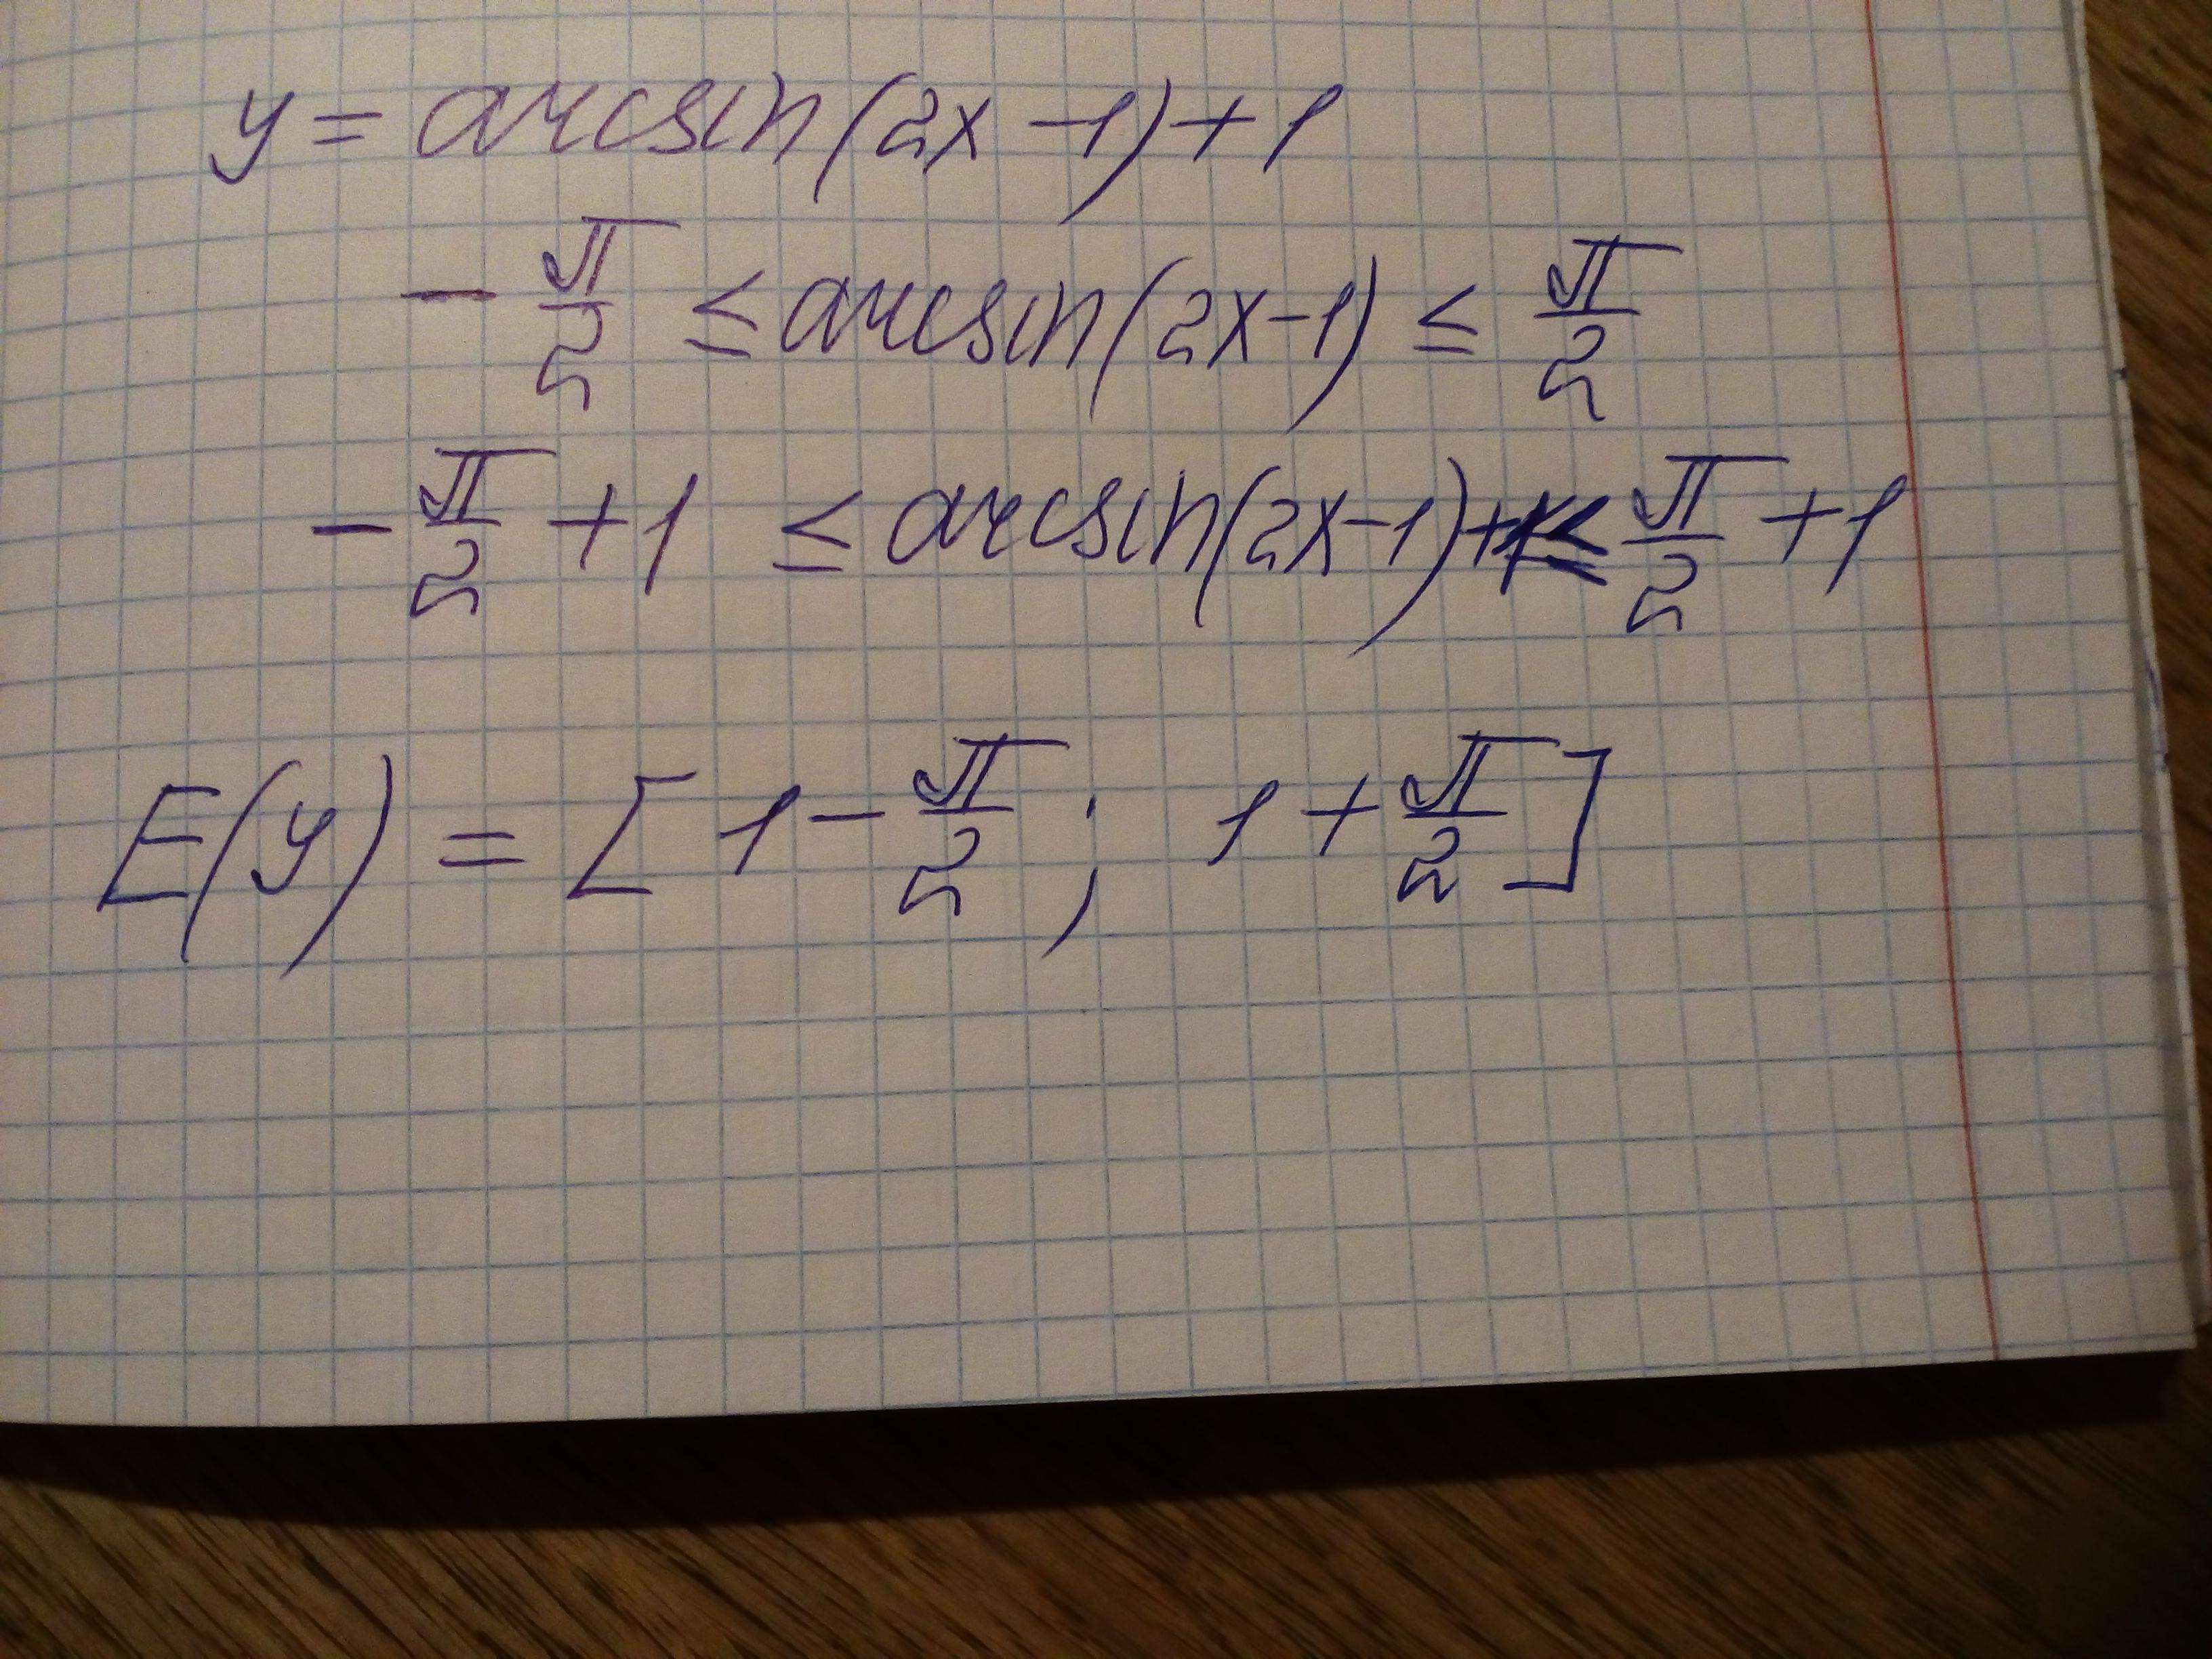 y = arcsin(2x - 1) + 1
- π/2 ≤ arcsin(2x-1) ≤ π/2
- π/2 + 1 ≤ arcsin(2x-1)+1 ≤ π/2 + 1
E(y) = [1 - π/2 ; 1 + π/2]